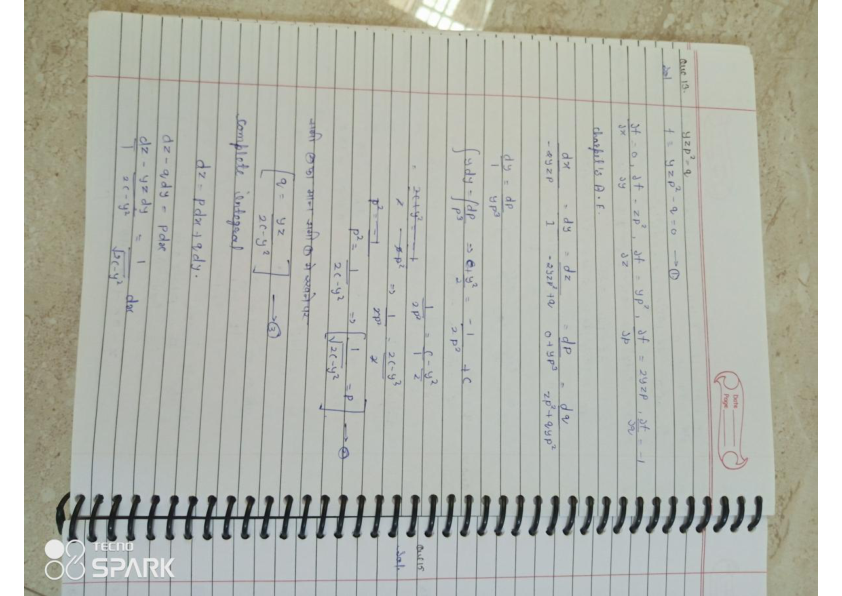 Date
Page
Que 13. yzp² = q
Sol f = yzp² - q = 0 → ①
∂f/∂x = 0, ∂f/∂y = zp², ∂f/∂z = yp², ∂f/∂p = 2yzp, ∂f/∂q = -1
charpit's A.E
dx/-2yzp = dy/1 = dz/-2yzp²+q = dp/0+yp³ = dq/zp²+qyp²
dy/1 = dp/yp³
∫ydy = ∫dp/p³ ⇒ y²/2 = -1/2p² + c
1/2p² = c/1 - y²/2
⇒ 1/2p² = 2c-y²/2
p² = 1/2c-y² ⇒ [1/√2c-y² = p] → ②
[q = yz/2c-y²] → ③
complete integral
dz = pdx + qdy.
dz - qdy = pdx
dz/1 - yzdy/2c-y² = 1/√2c-y² dx
Que 15
Sol.
TECNO
SPARK